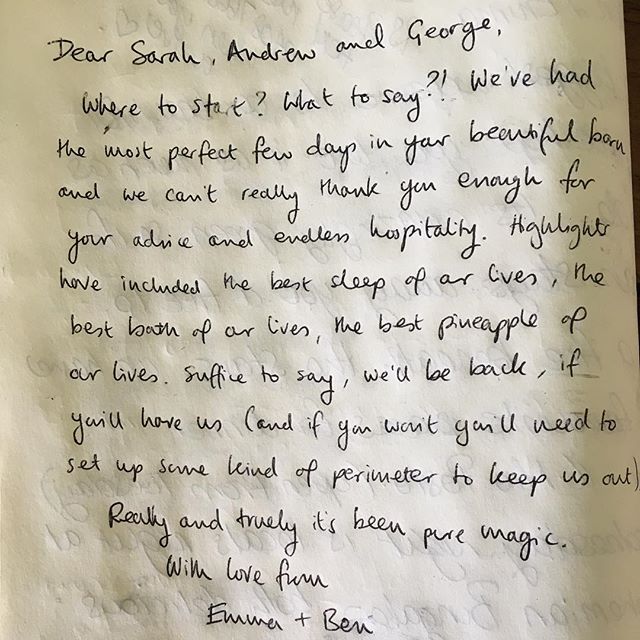 Dear Sarah, Andrew and George,
Where to start? What to say?! We've had
the most perfect few days in your beautiful barn
and we can't really thank you enough for
your advice and endless hospitality. Highlights
have included the best sleep of our lives, the
best bath of our lives, the best pineapple of
our lives. Suffice to say, we'll be back, if
you'll have us (and if you won't you'll need to
set up some kind of perimeter to keep us out)
Really and truely it's been pure magic.
With love from
Emma + Ben